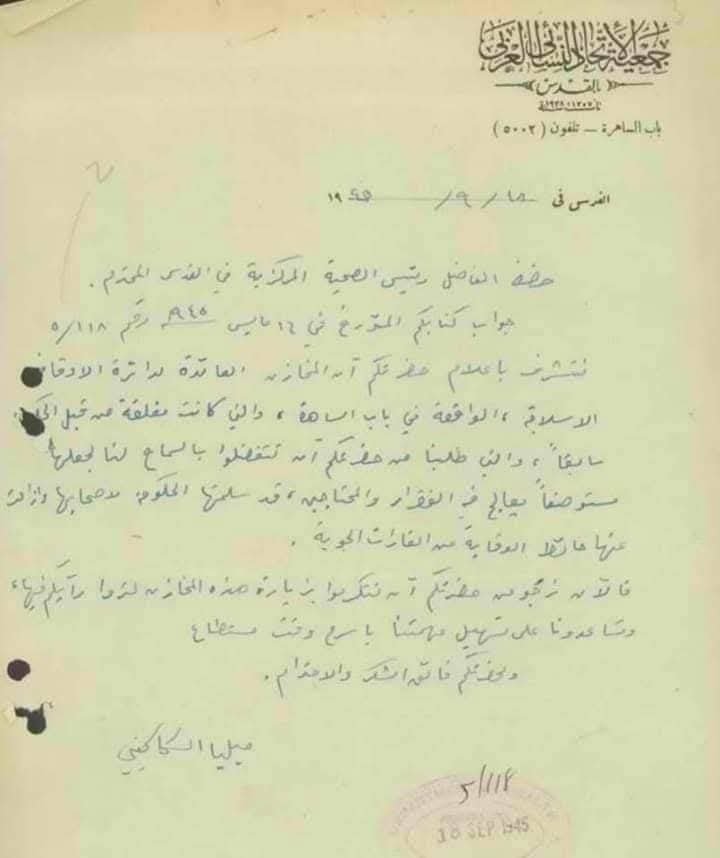 جمعية الاتحاد النسائي العربي
بالقدس
تأسست ١٣٥٧-١٩٣٨
باب الساهرة — تلفون (٥٠٠٢)
القدس في ١٨/ ٩/ ١٩٤٥
حضرة الفاضل رئيس الصحية المركزية في القدس المحترم.
جواب كتابكم المؤرخ في ١٦ مايس ٩٤٥ رقم ٥/١١٨
نتشرف باعلام حضرتكم أن المخازن العائدة لدائرة الاوقاف
الاسلامية، الواقعة في باب الساهرة، والتي كانت مغلقة من قبل الحكومة
سابقاً، والتي طلبنا من حضرتكم أن تتفضلوا بالسماح لنا لجعلها
مستوصفاً يعالج فيه الفقراء والمحتاجين، قد سلمتها الحكومة لاصحابها وازالت
عنها حائط الوقاية من الغارات الجوية.
فالآن نرجو من حضرتكم أن تتكرموا بزيارة هذه المخازن لتروا رأيكم فيها،
وتساعدونا على تسهيل مهمتنا باسرع وقت مستطاع
ولحضرتكم فائق الشكر والاحترام.
ميليا السكاكيني
5/118
18 SEP 1945